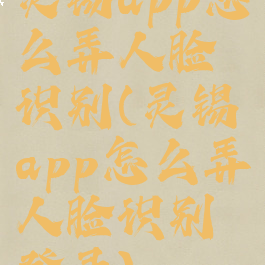 灵锡app怎
么弄人脸
识别(灵锡
app怎么弄
人脸识别
登录)